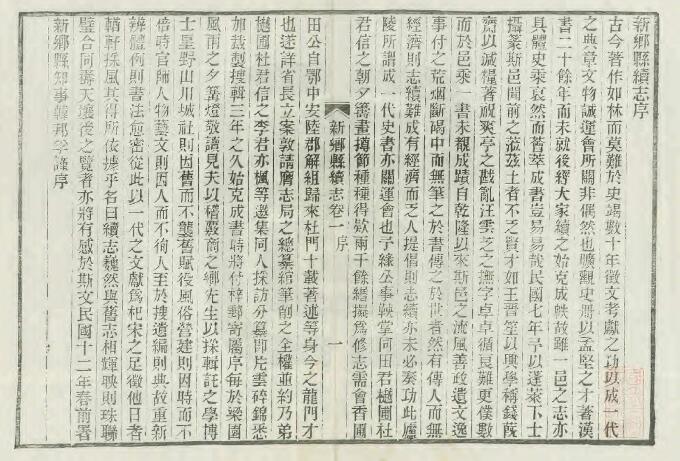 新鄉縣續志序
古今著作如林而莫難於史竭數十年徵文考獻之功以成一代
之典章文物誠運會所關非偶然也曠觀史冊以孟堅之才著漢
書二十餘年而未就後經大家續之始克成帙故雖一邑之志亦
具體史乘裒然而薈萃成書豈易易哉民國七年予以蓬萊下士
攝篆斯邑間前之蒞茲土者不乏賢才如王晉筌以興學稱錢
齋以減糧著祝爽亭之戡亂汪雲芝之撫字卓卓循良難更僕數
而於邑乘一書未覩成蹟自乾隆以來斯邑之流風善政遺文逸
事付之荒烟斷碣中而無筆之於書傳之於世者然有傳人而無
經濟則志續難成有經濟而乏人提倡則志續亦未必奏功此廬
陵所謂成一代史書亦關運會也予緣公事鞅掌向田君樾圃杜
君信之朝夕籌畫撙節種種得款兩千餘緡擬為修志需會香圃
新鄉縣續志卷一 序 一
田公自鄂中安陸郡解組歸來杜門十載著述等身今之龍門才
也遂詳省長立案敦請膺志局之總纂綰筆削之全權並約乃弟
樾圃杜君信之李君亦楓等遴集同人採訪分纂即片雲碎錦悉
加裁製搜輯三年之久始克成書時將付梓郵寄屬序每於梁園
風雨之夕篝燈敬讀見夫以稽覈商之鄉先生以採輯託之學博
士星野山川城社則因舊而不襲舊賦役風俗營建則因時而不
倍時官師人物藝文則因人而不徇人至於搜遺編則典故重新
辨體例則書法愈密從此以一代之文獻為杞宋之足徵他日者
輶軒採風其得所依據乎名曰續志巍然與舊志相輝映則珠聯
璧合同壽天壤後之覽者亦將有感於斯文民國十二年春前署
新鄉縣知事韓邦孚謹序